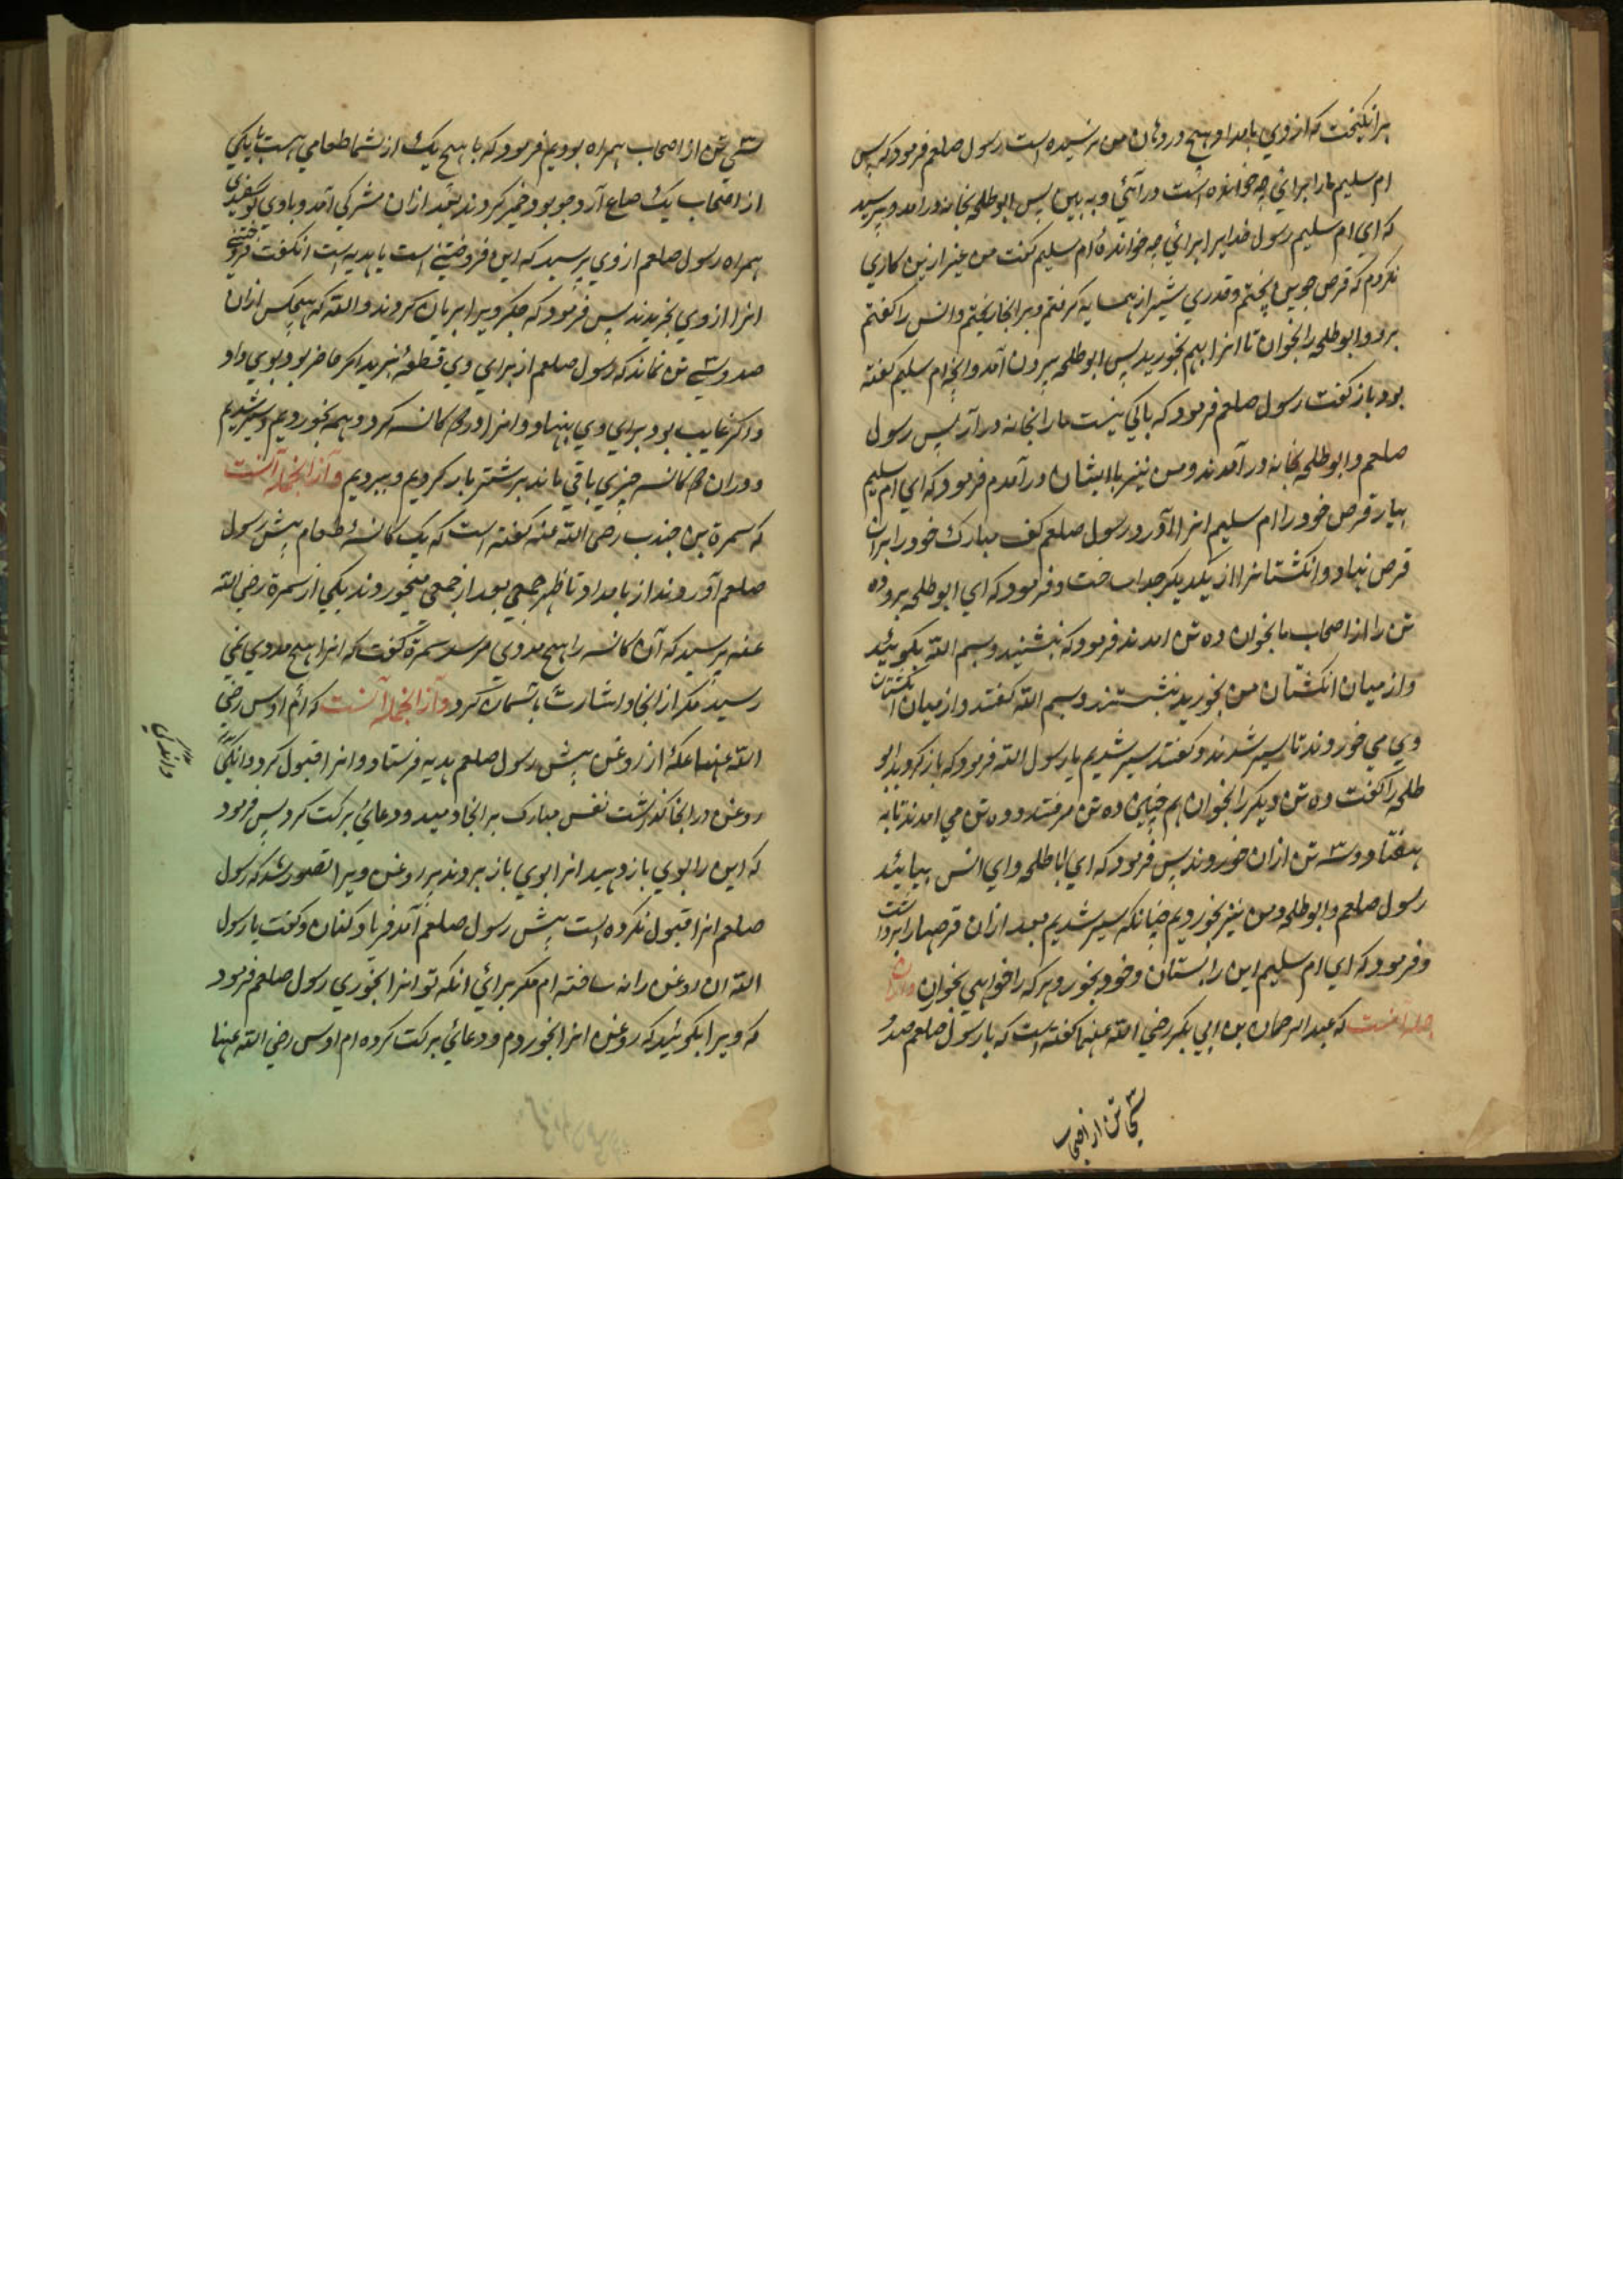 برانگیخت که از وی بامداد و هیچ در دهان من نرسیده است رسول صلعم فرمود که پس
ام سلیم ما را برای چه خوانده است در آئی و به بین پس ابو طلحه بخانه در آمد و پرسید
که ای ام سلیم رسول خدایرا برائی چه خواندهٔ ام سلیم گفت من غیر ازین کاری
نکردم که قرص جوین پختم و قدری شیر از همسایه گرفتم و بر آنجا ریختم و انس را گفتم
برو و ابو طلحه را بخوان تا انرا بهم بخورید پس ابو طلحه بیرون آمد و انچه ام سلیم گفته
بود باز گفت رسول صلعم فرمود که باکی نیست ما را بخانه در آر پس رسول
صلعم و ابو طلحه بخانه در آمدند و من نیز با ایشان در آمدم فرمود که ای ام سلیم
بیار قرص خود را ام سلیم انرا آورد رسول صلعم کف مبارک خود را بران
قرص نهاد و انگشتانرا از یکدیگر جدا ساخت و فرمود که ای ابو طلحه برو ده
تن را از اصحاب ما بخوان ده تن امدند فرمود که بنشنید و بسم الله بگوئید
و از میان انگشتان من بخورید بنشستند و بسم الله گفتند و از میان انگشتان
وی می خوردند تا سیر شدند و گفتند سیر شدیم یا رسول الله فرمود که باز گردید ابو
طلحه را گفت ده تن دیگر را بخوان هم چنین ده تن میرفتند و ده تن می امدند تا به
هفتاد و سه تن ازان خوردند پس فرمود که ای ابا طلحه و ای انس بیائید
رسول صلعم و ابو طلحه و من نیز بخوردیم چنانکه سیر شدیم بعد ازان قرصها را برداشت
و فرمود که ای ام سلیم این را بستان و خود بخور و هر که را خواهی بخوان و ازان
جمله انست که عبد الرحمان بن ابی بکر رضی الله عنهما گفته است که با رسول صلعم صد و
سی تن از اصحاب
سی تن از اصحاب همراه بودیم فرمود که با هیچ یک از شما طعامی هست با یکی
از اصحاب یک صاع آرد جو بود خمیر کردند بعد ازان مشرکی آمد و با وی گوسفندی
همراه رسول صلعم از وی پرسید که این فروختنی است یا هدیه است انگفت فروختنی
انرا از وی بخریدند پس فرمود که جگر ویرا بریان کردند والله که هیچکس ازان
صد و سی تن نماند که رسول صلعم از برای وی قطعهٔ نبرید اگر حاضر بود بوی داد
و اگر غایب بود برای وی بنهاد و انرا در دو کاسه کرد و همه بخوردیم و سیر شدیم
و دران دو کاسه چیزی باقی ماند بر شتر بار کردیم و ببردیم و از انجمله آنست
که سمرة بن جندب رضی الله عنه گفته است که یک کاسهٔ طعام پیش رسول
صلعم آوردند از بامداد تا ظهر جمعی بعد از جمعی میخوردند یکی از سمرة رضی الله
عنه پرسید که آن کاسه را هیچ مددی میرسد سمرة گفت که انرا هیچ مددی نمی
رسید مگر از انجا و اشارت باسمان کرد و از انجمله آنست که ام اوس رضی
الله عنها عکهٔ از روغن پیش رسول صلعم هدیه فرستاد و انرا قبول کرد و اندکی
روغن در انجا گذاشت نفس مبارک بر انجا دمید و دعائی برکت کرد پس فرمود
که این را بوی باز دهید انرا بوی باز بردند پر روغن ویرا تصور شد که رسول
صلعم انرا قبول نکرده است پیش رسول صلعم آمد فریاد کنان و گفت یا رسول
الله ان روغن را نه ساخته ام مگر برائی انکه تو انرا بخوری رسول صلعم فرمود
که ویرا بگوئید که روغن انرا بخوردم و دعائی برکت کرده ام اوس رضی الله عنها